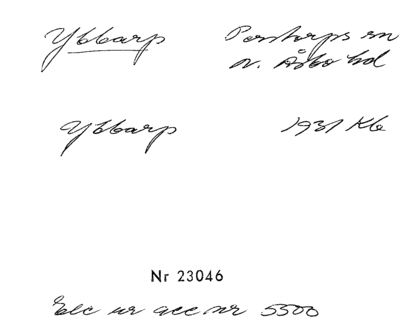 Ybbarp Perstorps sn
N. Åsbo hd
Ybbarp 1931 Kb
Nr 23046
Exc ur acc nr 5500